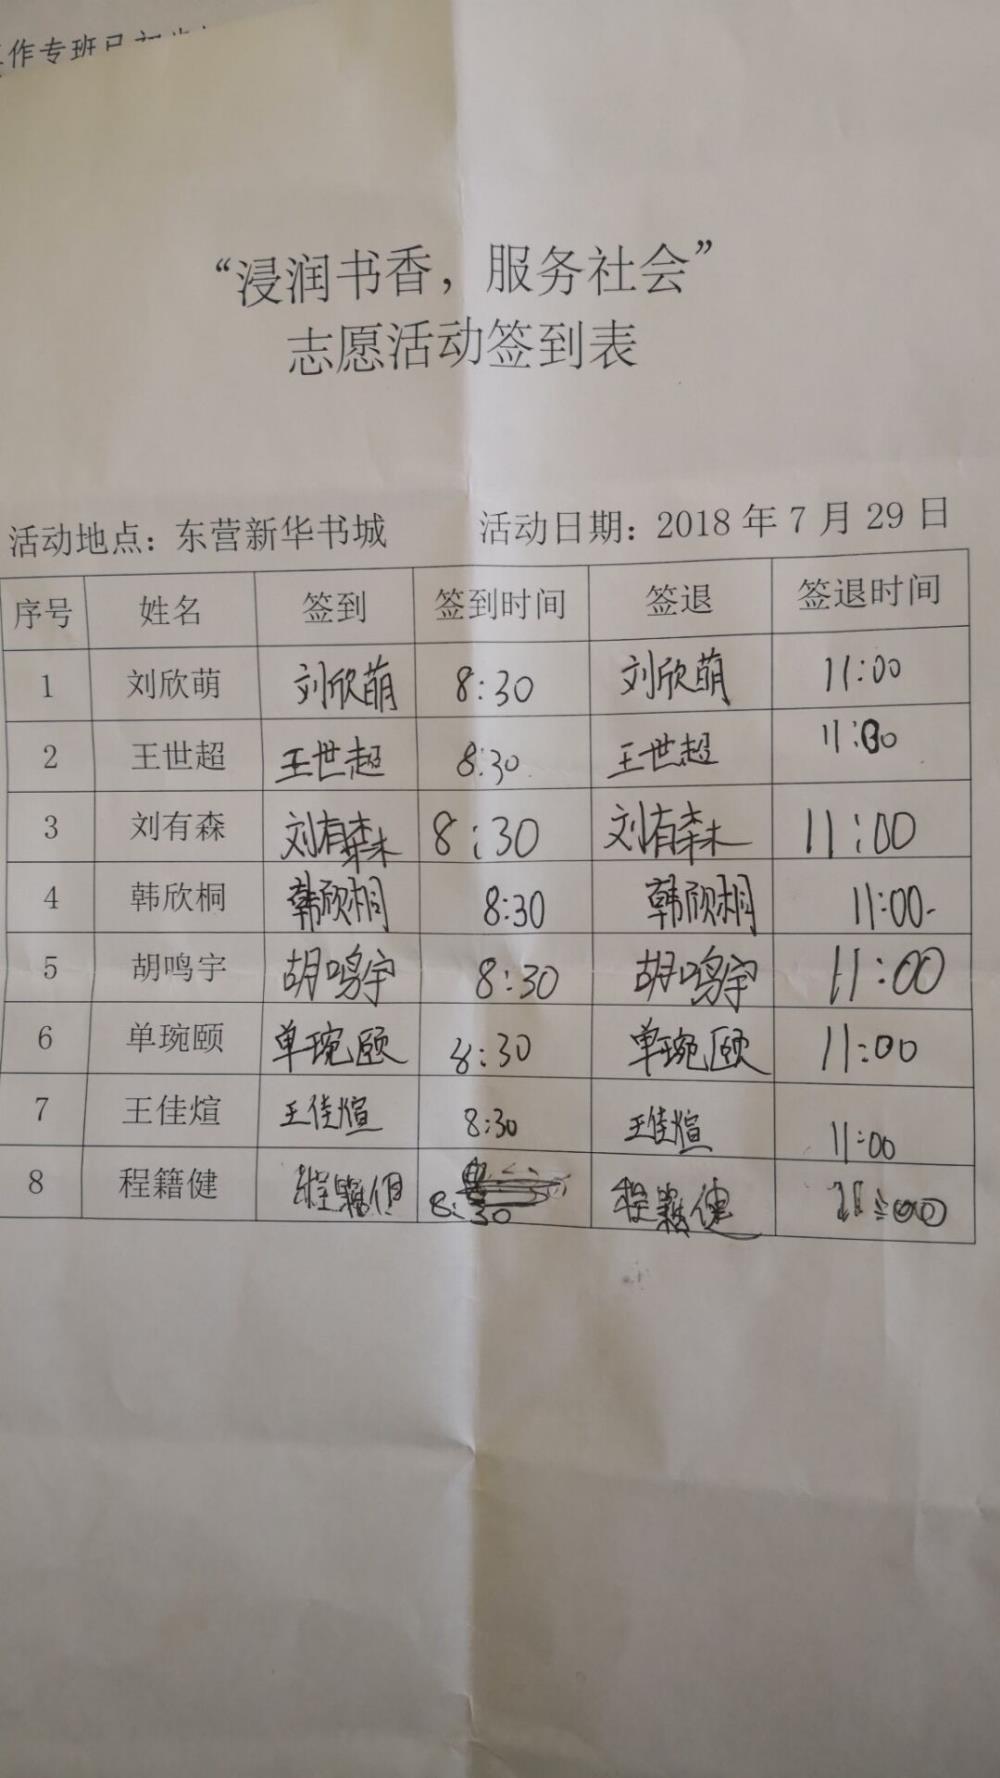 作专班已
“浸润书香，服务社会”
志愿活动签到表
活动地点：东营新华书城 活动日期：2018 年 7 月 29 日
序号 姓名 签到 签到时间 签退 签退时间
1 刘欣萌 刘欣萌 8:30 刘欣萌 11:00
2 王世超 王世超 8:30 王世超 11:00
3 刘有森 刘有森 8:30 刘有森 11:00
4 韩欣桐 韩欣桐 8:30 韩欣桐 11:00
5 胡鸣宇 胡鸣宇 8:30 胡鸣宇 11:00
6 单琬颐 单琬颐 8:30 单琬颐 11:00
7 王佳煊 王佳煊 8:30 王佳煊 11:00
8 程籍健 程籍健 8:30 程籍健 11:00